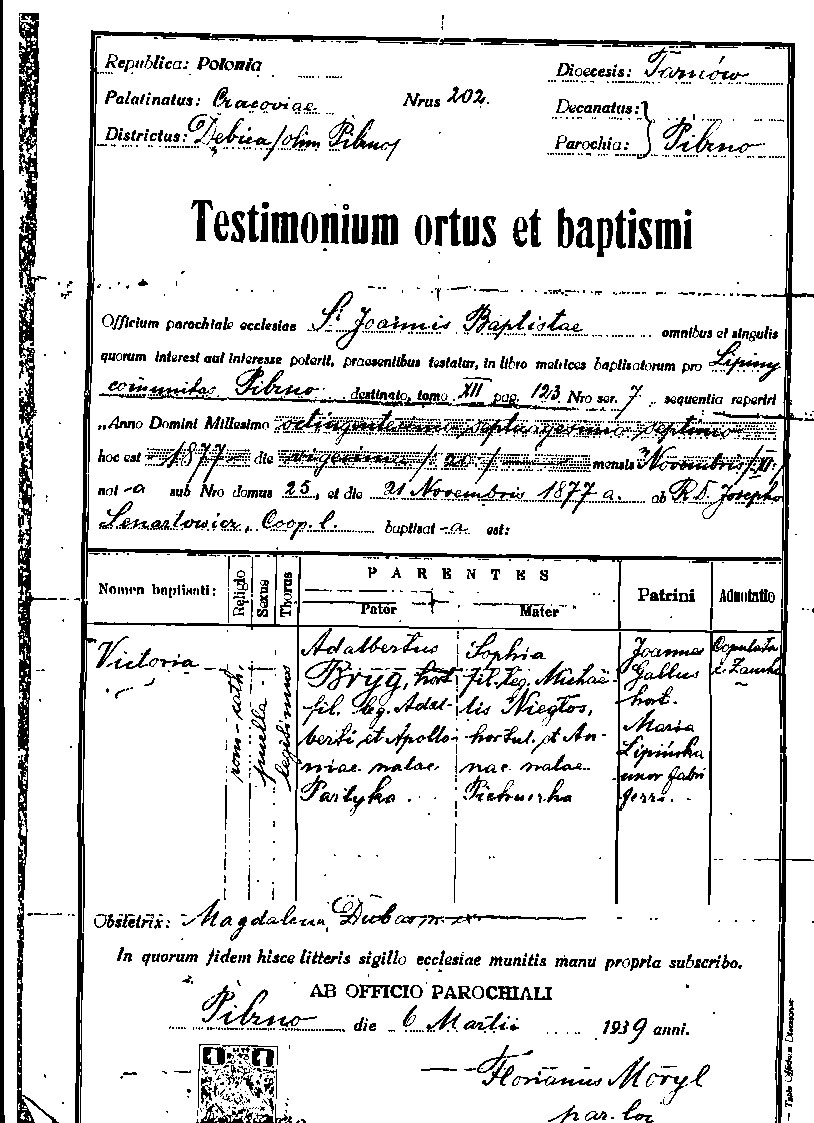 Republica: Polonia
Palatinatus: Cracoviae
Districtus: Dębica /olim Pilzno/
Nrus 202.
Dioecesis: Tarnów
Decanatus:
Parochia: } Pilzno
Testimonium ortus et baptismi
Officium parochiale ecclesiae S. Joannis Baptistae omnibus et singulis
quorum interest aut interesse poterit, praesentibus testatur, in libro metrices baptisatorum pro Lipiny
comunitas Pilzno destinato, tomo XII pag. 123 Nro ser. 7 sequentia reperiri
„Anno Domini Millesimo octingentesimo septuagesimo septimo
hoc est 1877 die vigesima /20/ mensis Novembris /XI/
nat-a sub Nro domus 25, et die 21 Novembris 1877 a. ab R.D. Josepho
Lenartowicz, Coop. l. baptisat-a est:
Nomen baptisati:
Religio
Sexus
Thorus
PARENTES
Pater
Mater
Patrini
Adnotatio
Victoria
rom-cath
puella
legitimus
Adalbertus
Bryg, hort
fil. leg. Adal-
berti et Apollo-
niae natae
Partyka
Sophia
fil. leg. Michaë-
lis Niegłos,
hortul. et An-
nae natae
Joannes
Gallus
hort.
Maria
Lipińska
uxor fabri
ferri.
Copulata
Obstetrix: Magdalena
In quorum fidem hisce litteris sigillo ecclesiae munitis manu propria subscribo.
AB OFFICIO PAROCHIALI
Pilzno die 6 Martii 1939 anni.
1 1
Florianus Moryl
par. loc